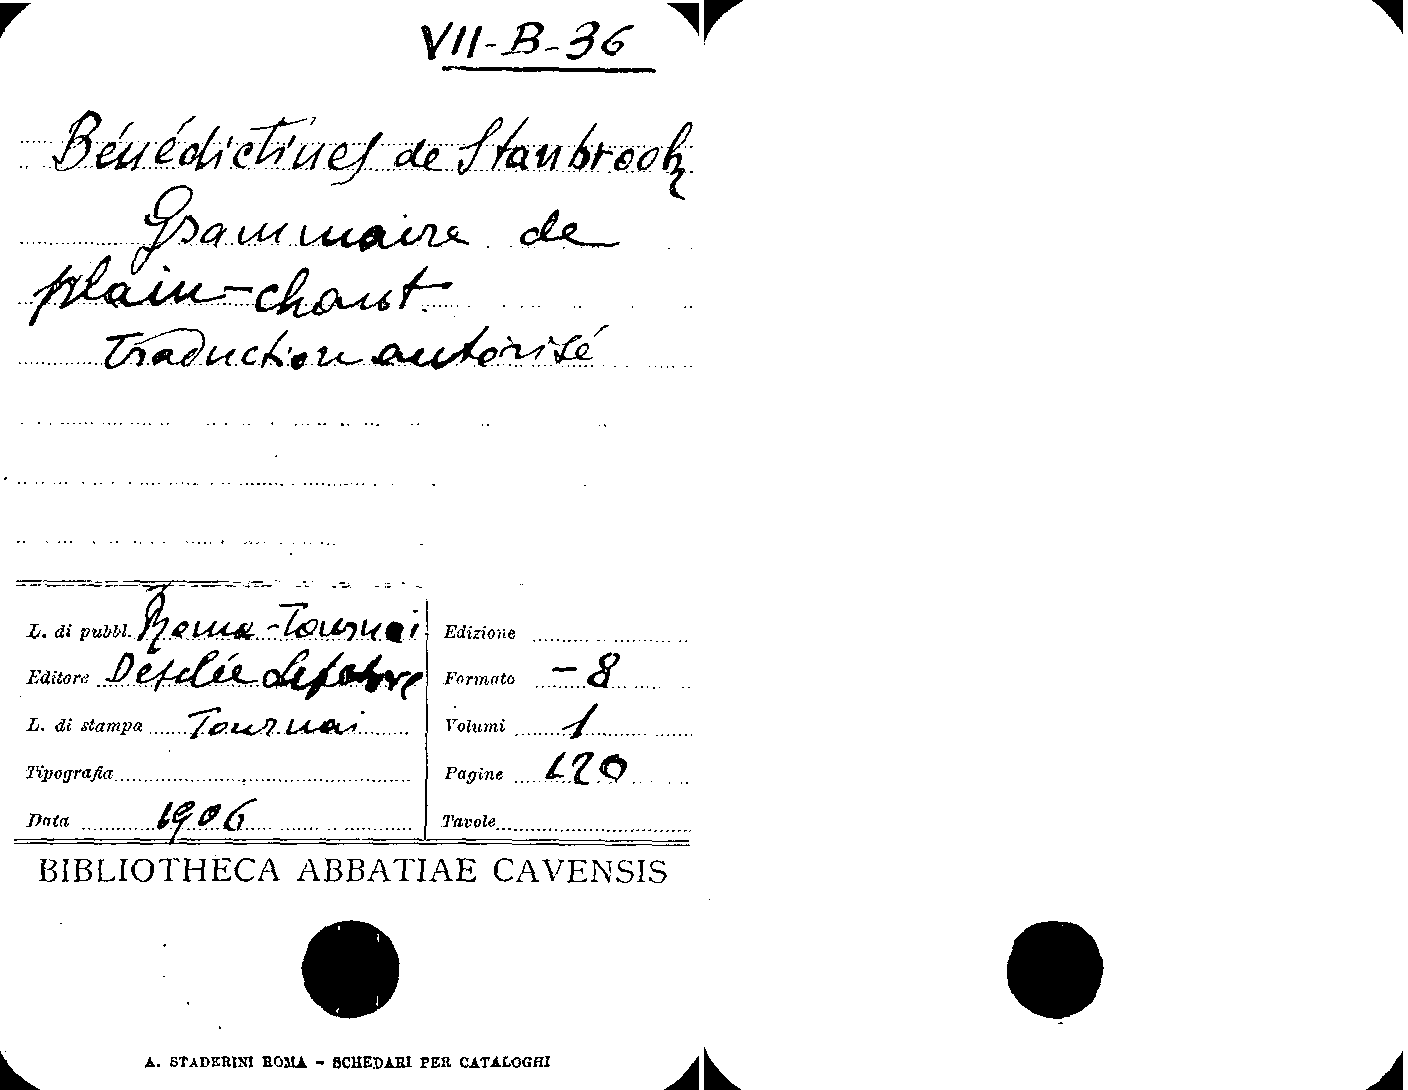 VII-B-36
Bénédictines de Stanbrook
Grammaire de
plain-chant
Traduction autorisé
L. di pubbl. Roma-Tournai
Edizione
Editore Desclée Lefebvre
Formato -8
L. di stampa Tournai
Volumi 1
Tipografia
Pagine 120
Data 1906
Tavole
BIBLIOTHECA ABBATIAE CAVENSIS
A. STADERINI ROMA - SCHEDARI PER CATALOGHI